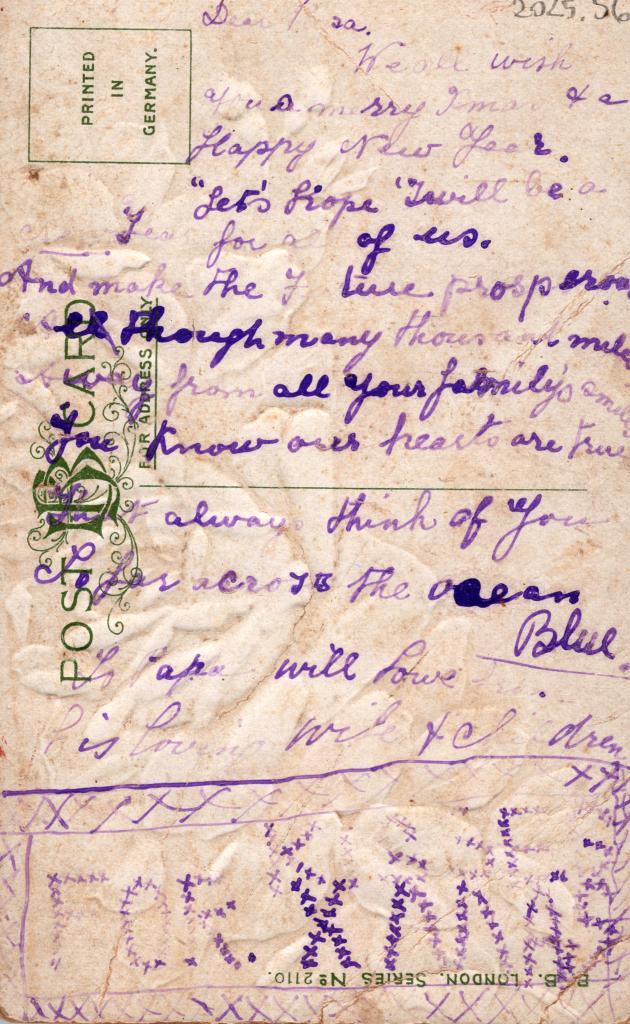 2025.56
Dear Papa.
We all wish
You a merry Xmas & a
Happy New Year.
"Let's hope 'Twill be a
Year for all of us.
And make the Future prosperous
although many thousand miles
Away from all your family's smiles
You Know our hearts are true
And always think of You
So far across the ocean Blue.
To Papa with Love
His loving wife & Children
XX
XMAS
PRINTED
IN
GERMANY.
POST CARD
FOR ADDRESS ONLY
B
B. LONDON. SERIES Nº 2110.